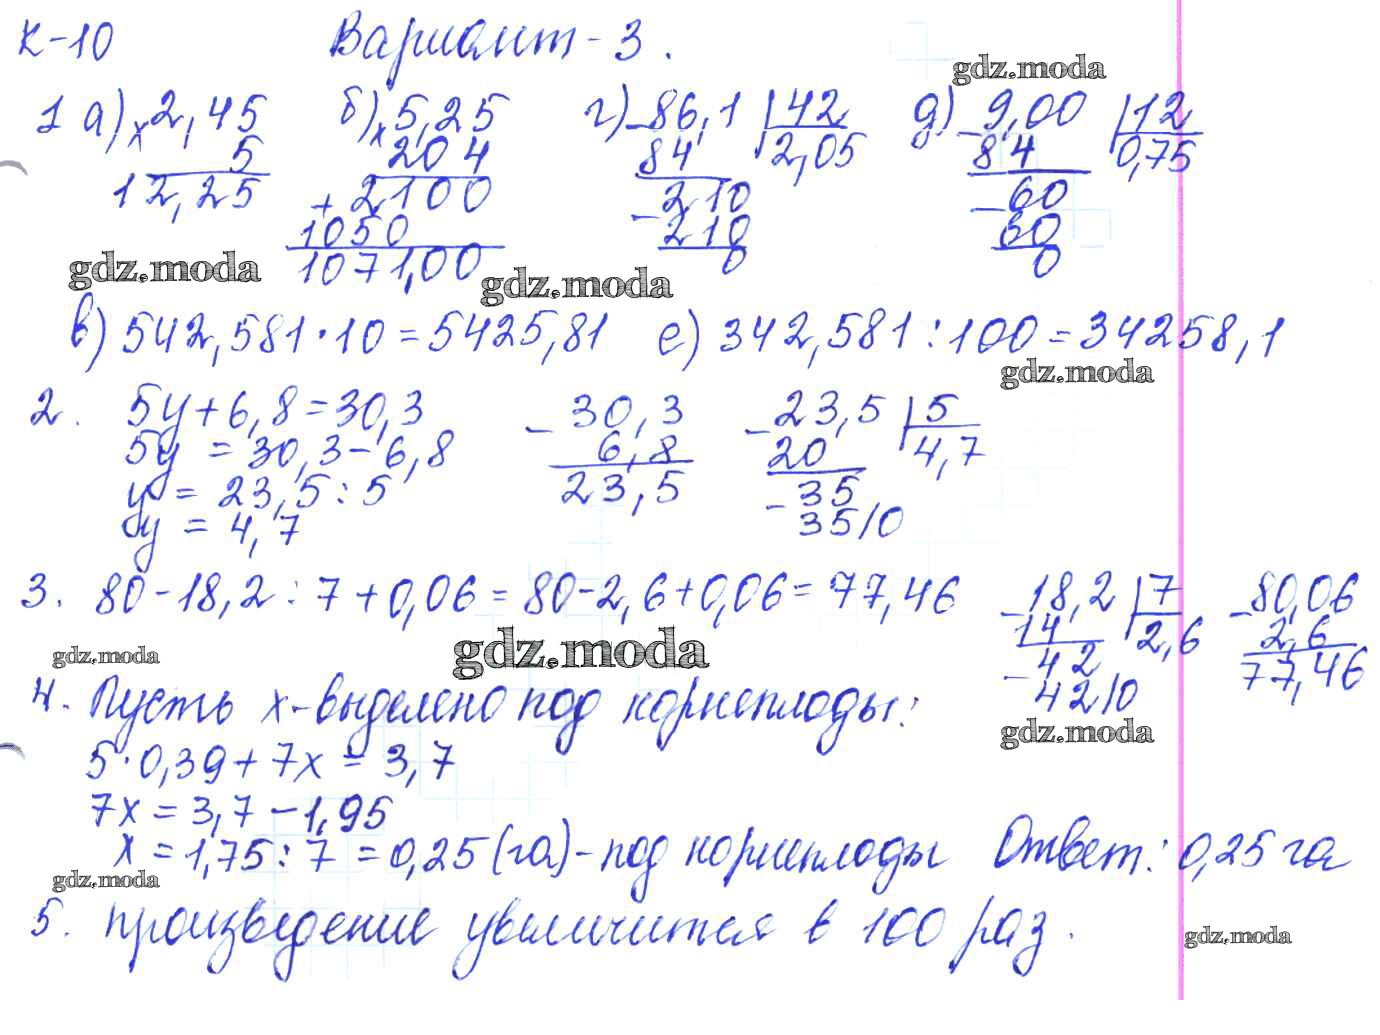 К-10 Вариант-3.
gdz.moda
1 а) × 2,45 б) × 5,25 г) - 86,1 | 42 д) - 9,00 | 12
5 204 84 2,05 84 0,75
12,25 + 2100 - 210 - 60
1050 210 60
1071,00 0 0
gdz.moda gdz.moda
в) 542,581·10=5425,81 е) 342,581:100=34258,1
gdz.moda
2. 5у+6,8=30,3 - 30,3 - 23,5 | 5
5у = 30,3-6,8 6,8 20 4,7
у = 23,5:5 23,5 - 35
у = 4,7 35/0
3. 80-18,2:7+0,06=80-2,6+0,06=77,46 - 18,2 | 7 - 80,06
14 2,6 2,6
gdz.moda gdz.moda - 42 77,46
42/0
4. Пусть х-выделено под корнеплоды:
gdz.moda
5·0,39+7х = 3,7
7х = 3,7-1,95
х = 1,75:7 =0,25(га)-под корнеплоды Ответ: 0,25 га
gdz.moda
5. произведение увеличится в 100 раз.
gdz.moda